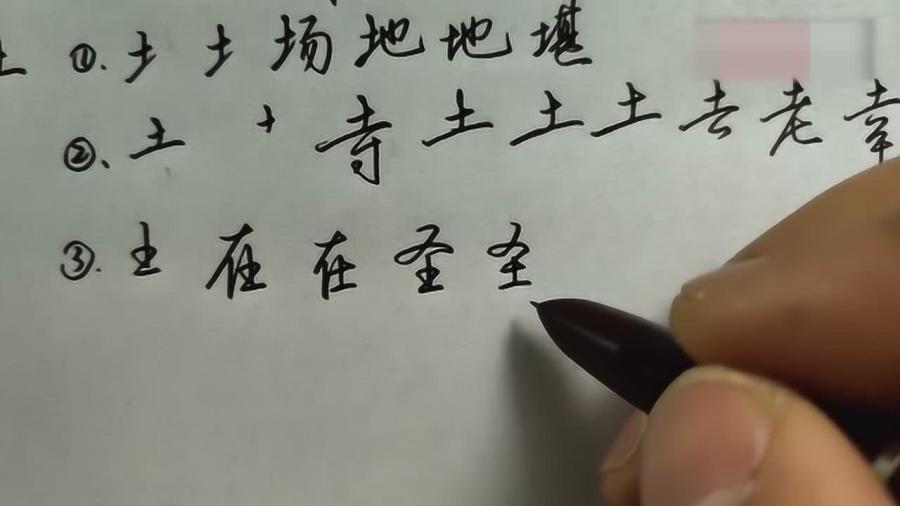 土 ①. 土 土 场 地 地 堪
②、土 十 寺 土 土 土 去 老 幸
③. 土 在 在 圣 圣